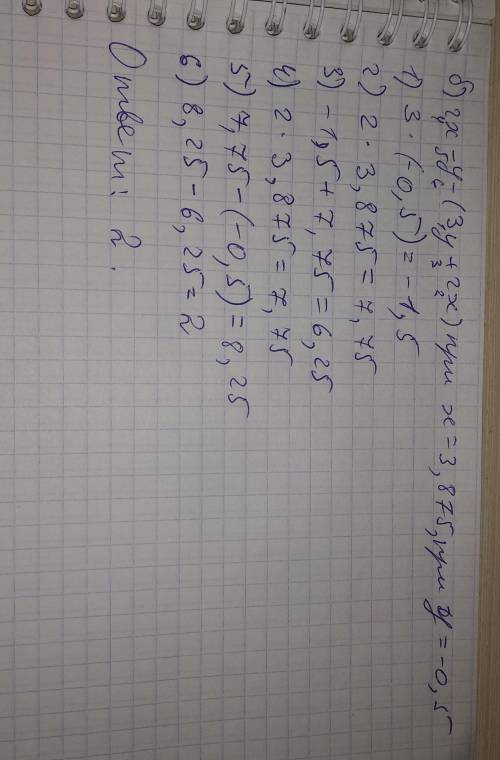 б) 2x - y - (3y + 2x) при x = 3,875, при y = -0,5
1) 3 · (-0,5) = -1,5
2) 2 · 3,875 = 7,75
3) -1,5 + 7,75 = 6,25
4) 2 · 3,875 = 7,75
5) 7,75 - (-0,5) = 8,25
6) 8,25 - 6,25 = 2
Ответ: 2.